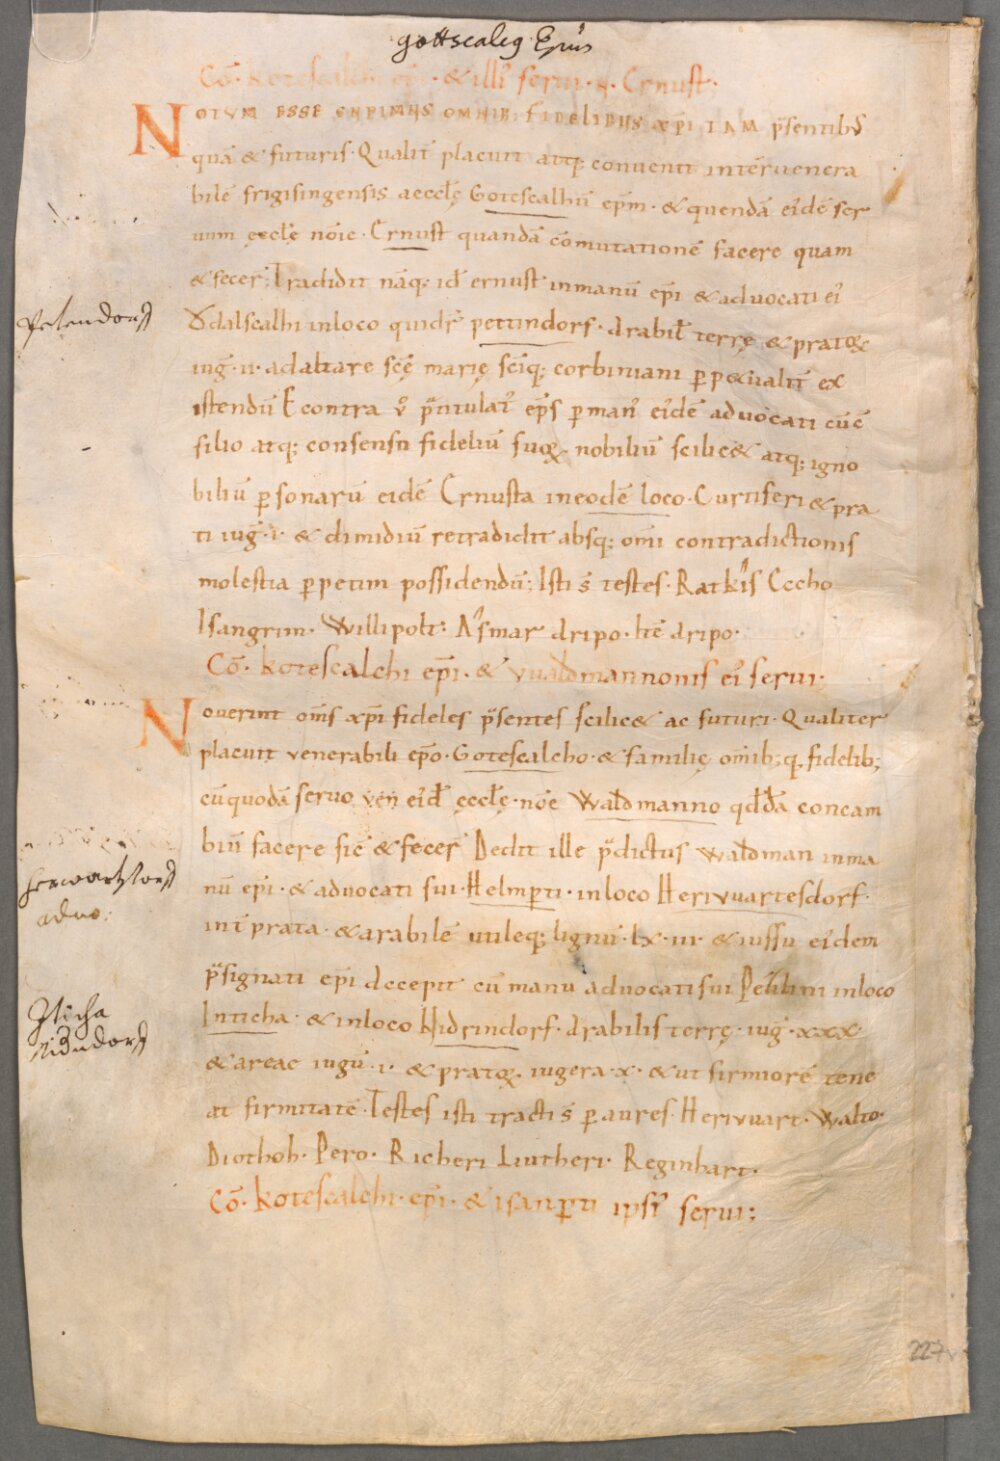 gottscalcg Epũs
Cõ. kotescalchi epĩ. & illi' serui. n. Ernust.
NOTVM ESSE CUPIMUS OMNIB; FIDELIBUS xp̃i IAM p̃sentibus
quã & futuris. Qualit̃ placuit atq; conuenit inter uenera
bilẽ frigisingensis aecclę Gotescalhũ ep̃m. & quendã ei'dẽ ser
uum ęcclę nõie. Ernust quandã cõmutationẽ facere quam
& fecer̃; Tradidit nãq; id' ernust in manũ ep̃i & aduocati ei'
Ódalscalhi in loco qui dr̃ pettindorf. arabil̃ terrę & pratoꝝ
iug̃. ii. ad altare scẽ marię scĩq; corbiniani ꝑpetualit̃ ex
istendũ E contra ů p̃titulat' ep̃s ꝑ man' ei'dẽ aduocati cũ c̃
silio atq; consensu fideliũ suoꝝ. nobiliũ scilic& atq; igno
biliũ ꝑsonarũ eidẽ Ernusta in eodẽ loco. Curtiferi & pra
ti iug̃. i. & dimidiũ retradidit absq; om̃i contradictionis
molestia ꝑpetim possidendũ; Isti s̃ testes. Ratkis Eccho
Isangrim. Willipolt. A'smar dripo. itẽ dripo.
Cõ. kotescalchi ep̃i. & vualdmannonis ei' serui.
Nouerint om̃s xp̃i fideles p̃sentes scilic& ac futuri. Qualiter
placuit venerabili ep̃o. Gotescalcho. & familię om̃ib; q, fidelib;
cũ quodã seruo ei'd' ęcclę. nõe Waldmanno qd'dã concam
biũ facere sic̃ & fecer̃ Dedit ille p̃dictus waldman in ma
nũ ep̃i. & aduocati sui. Helmꝑti. in loco Herivuartesdorf.
int̃ prata. & arabilẽ utileq; lignũ. lx. iii. & iussu ei'dem
p̃signati ep̃i accepit cũ manu aduocati sui Pélilini in loco
Inticha. & in loco Hidrindorf. arabilis terrę. iug̃. xxx
& areae iugũ. i. & pratoꝝ. iugera. x. & ut firmiorẽ tene
at firmitatẽ. Testes isti tracti s̃ ꝑ aures. Herivuart. Walto.
Diothoh. Pero. Richeri Liutheri. Reginhart.
Cõ. kotescalchi. ep̃i. & isanꝑti ipsi' serui;
Petendorff
herwartstorff
aduo:
Iticha
Nidndorff
227v